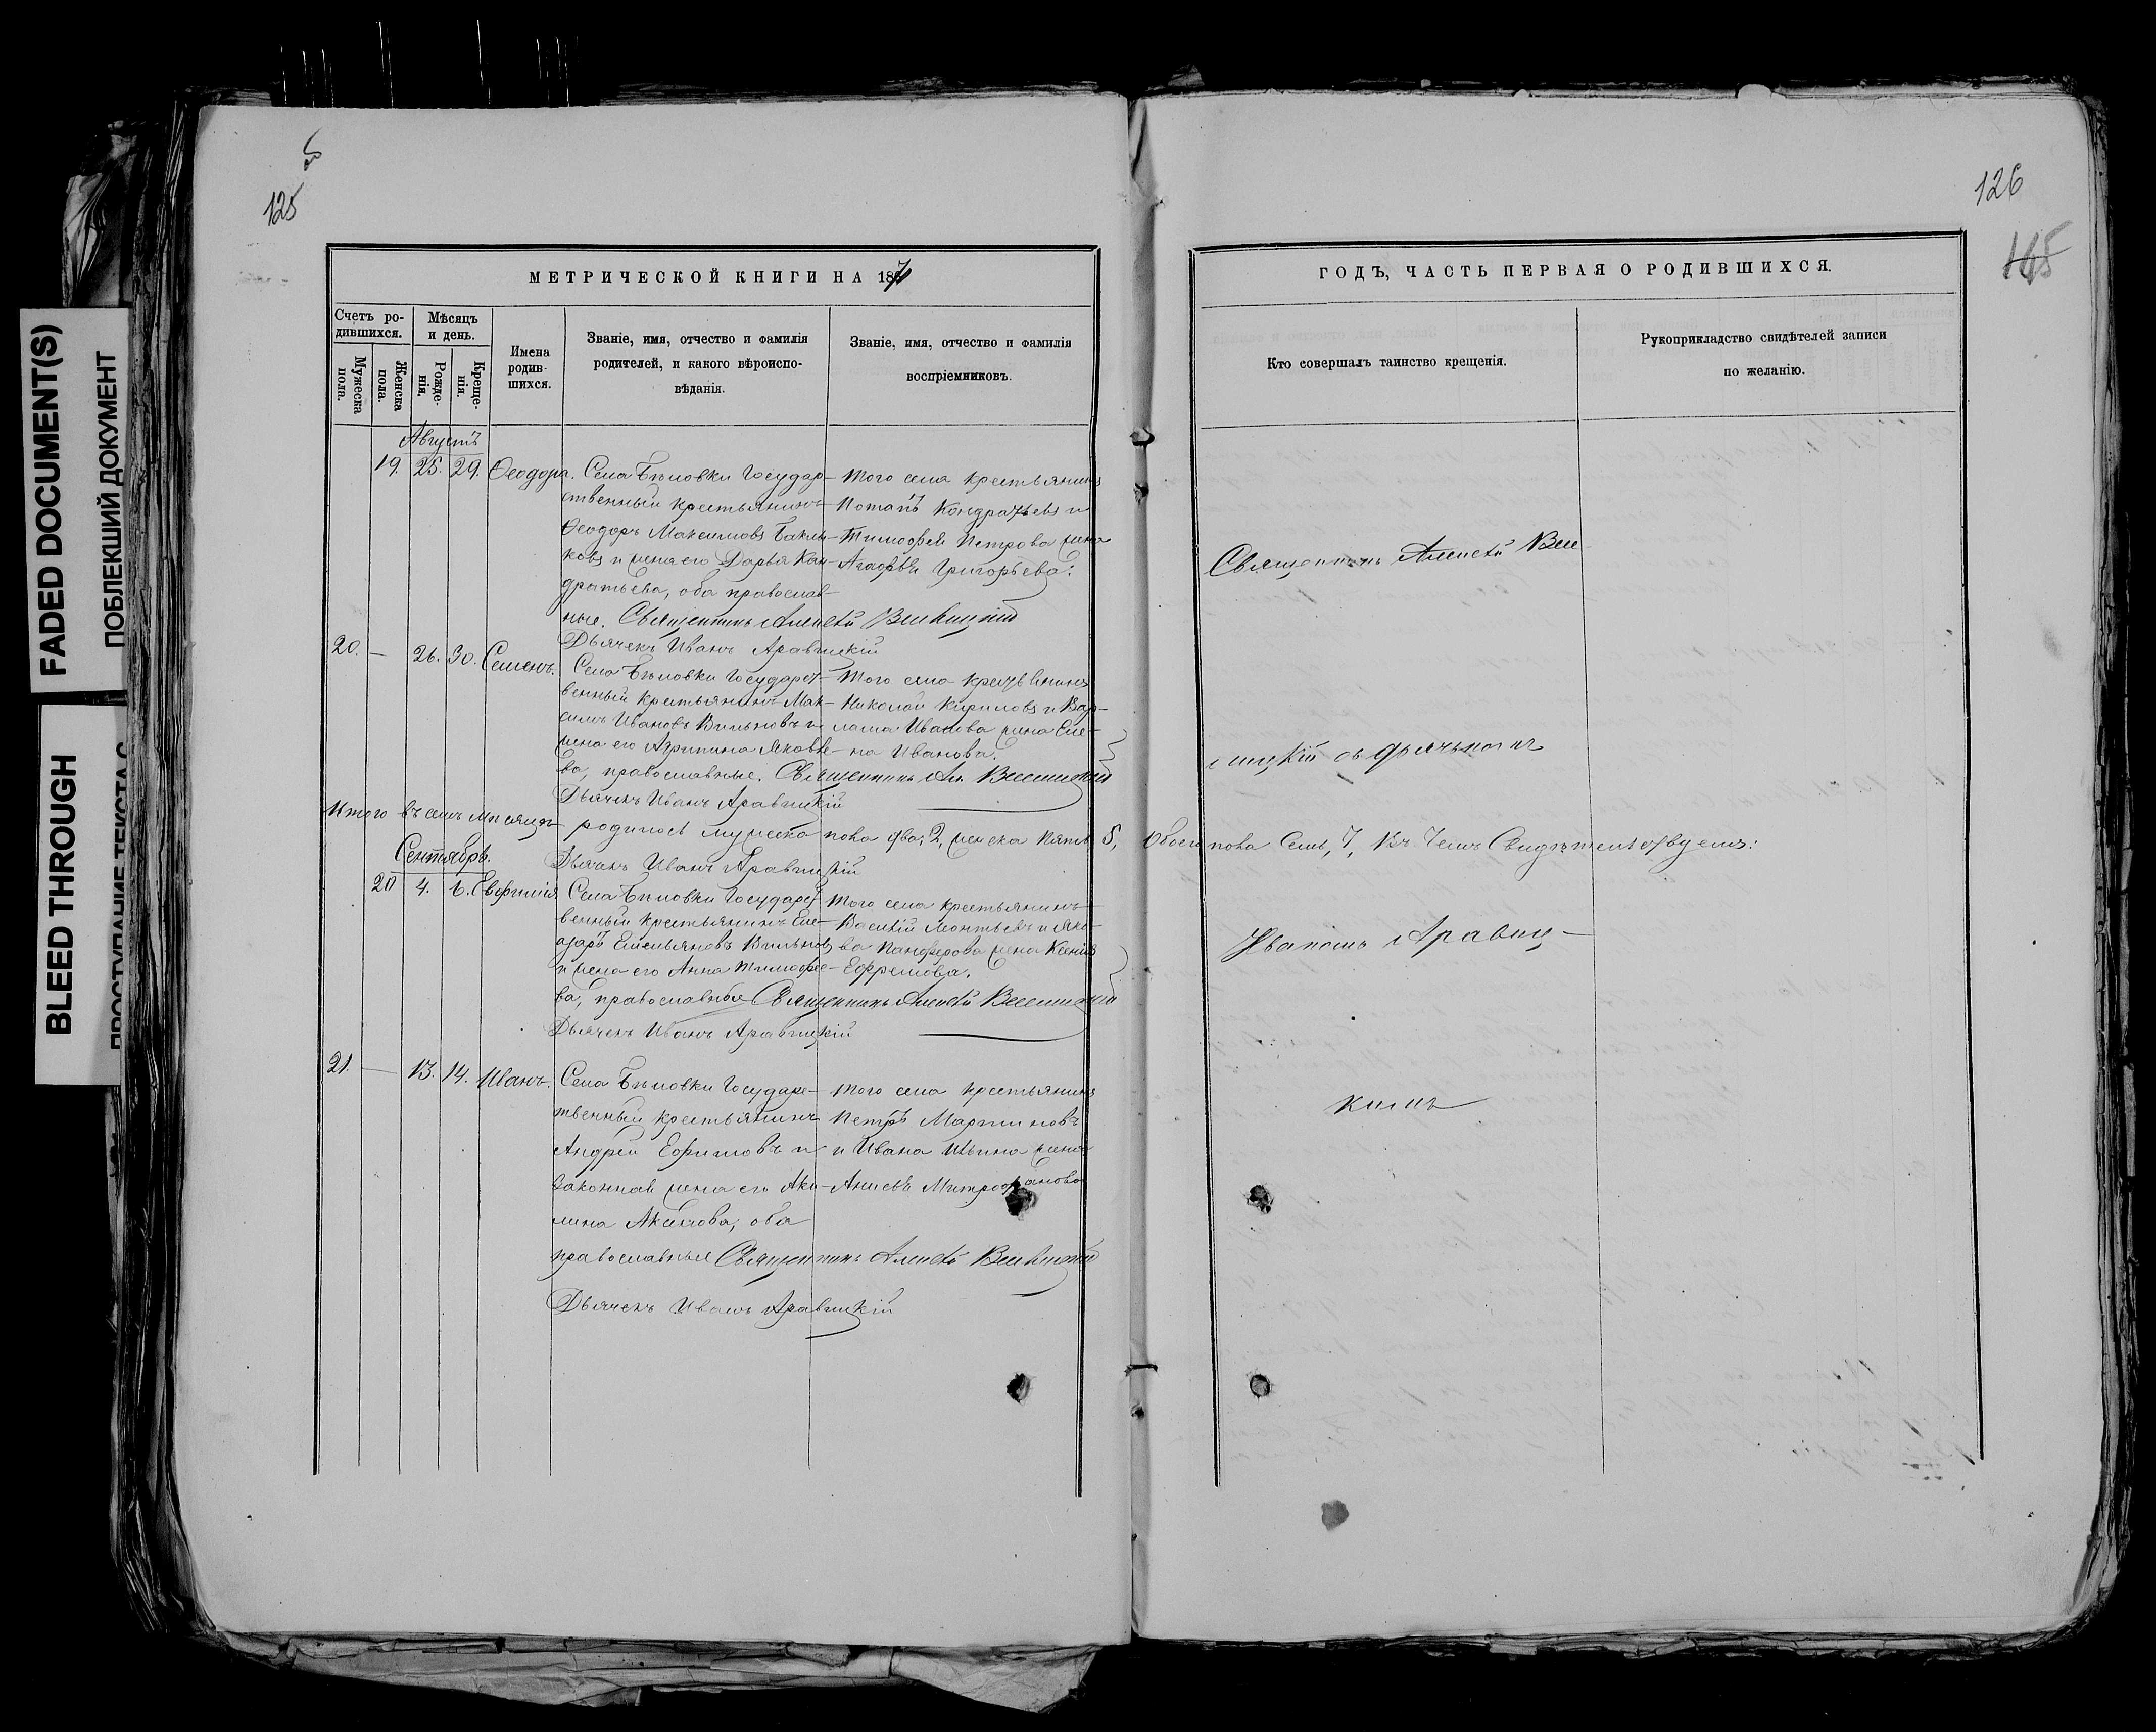 FADED DOCUMENT(S)
ПОБЛЕКШИЙ ДОКУМЕНТ
BLEED THROUGH
125
126
МЕТРИЧЕСКОЙ КНИГИ НА 187
ГОДЪ, ЧАСТЬ ПЕРВАЯ О РОДИВШИХСЯ.
Счетъ ро-
дившихся.
Мужеска
пола.
Женска
пола.
Мѣсяцъ
и день.
Рожде-
нія.
Креще-
нія.
Имена
родив-
шихся.
Званіе, имя, отчество и фамилія
родителей, и какого вѣроиспо-
вѣданія.
Званіе, имя, отчество и фамилія
воспріемниковъ.
Кто совершалъ таинство крещенія.
Рукоприкладство свидѣтелей записи
по желанію.
Августъ
19. 25. 29. Ѳеодора.
Села Бѣловки Государ-
ственный крестьянинъ
Ѳеодоръ Максимовъ
ковъ и жена его Дарья Кон-
дратьева, оба православ-
ные. Священникъ Алексѣй
Дьячекъ Иванъ
того села крестьянинъ
Потапъ Кондратьевъ и
Тимофея Петрова жена
Агафья Григорьева.
20. — 26. 30. Семенъ.
Села Бѣловки Государст-
венный крестьянинъ Мак-
симъ Ивановъ Вильновъ и
жена его Агрипина Яковле-
ва, православные. Священникъ Ал.
Дьячекъ Иванъ
того села крестьянинъ
Николай Кириловъ и Вар-
лама Иванова жена Еле-
на Иванова.
Итого въ семъ мѣсяцѣ родилось мужеска пола два, 2, женска пять 5, обоего пола Семь, 7, Въ чемъ Свидѣтельствуемъ:
Дьячекъ Иванъ
Сентябрь.
20 4. 6. Евфимія
Села Бѣловки Государст-
венный крестьянинъ Еле-
азаръ Емельяновъ Вильновъ
и жена его Анна Тимофее-
ва, православные Священникъ Алексѣй
Дьячекъ Иванъ
того села крестьянинъ
Василій Леонтьевъ и Яко-
ва Панферова жена Ксенія
Ефремова.
21. — 13. 14. Иванъ.
Села Бѣловки Государс-
твенный крестьянинъ
Андрей Ефимовъ и
законная жена его Аку-
лина Акимова, оба
православные Священникъ Алексѣй
Дьячекъ Иванъ
того села крестьянинъ
Петръ Мартиновъ
и Ивана Ильина жена
Анисья Митрофанова
Священникъ Алексѣй
съ дьячкомъ
Иваномъ
кимъ